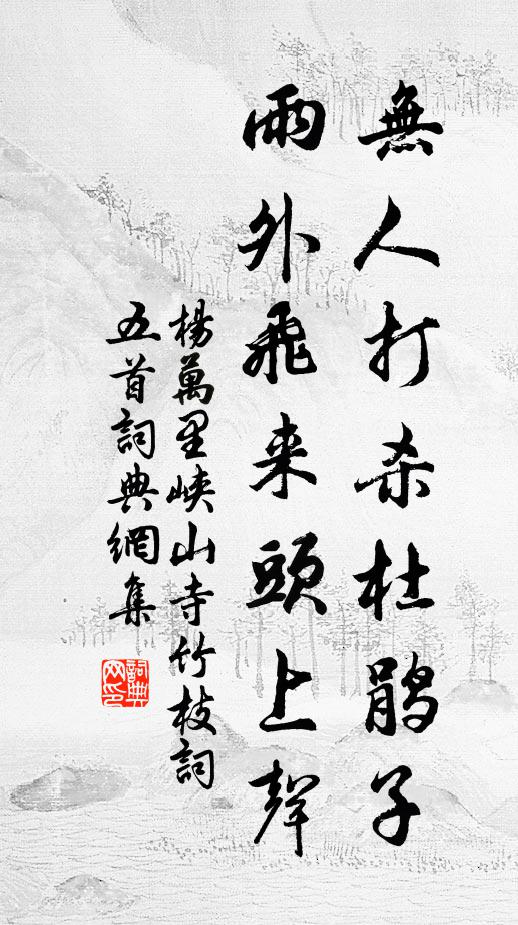 無人打杀杜鹃子
雨外飛来頭上聲
楊萬里峡山寺竹枝詞
五首詞典網集
詞典网印